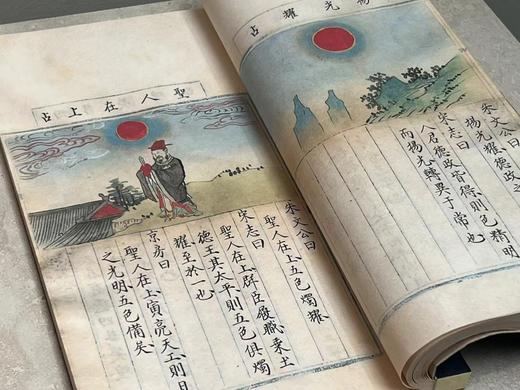 揚光耀占
朱文公曰
揚光耀德政之
宋志曰
人君德政皆得則色精明
而揚光轉異于常也
聖人在上占
朱文公曰
聖人在上五色燭耀
宋志曰
聖人在上群臣履職乘土
德王其太平則五色俱燭
耀至於一也
京房曰
聖人在上寅亮天工則日
之光明五色備矣